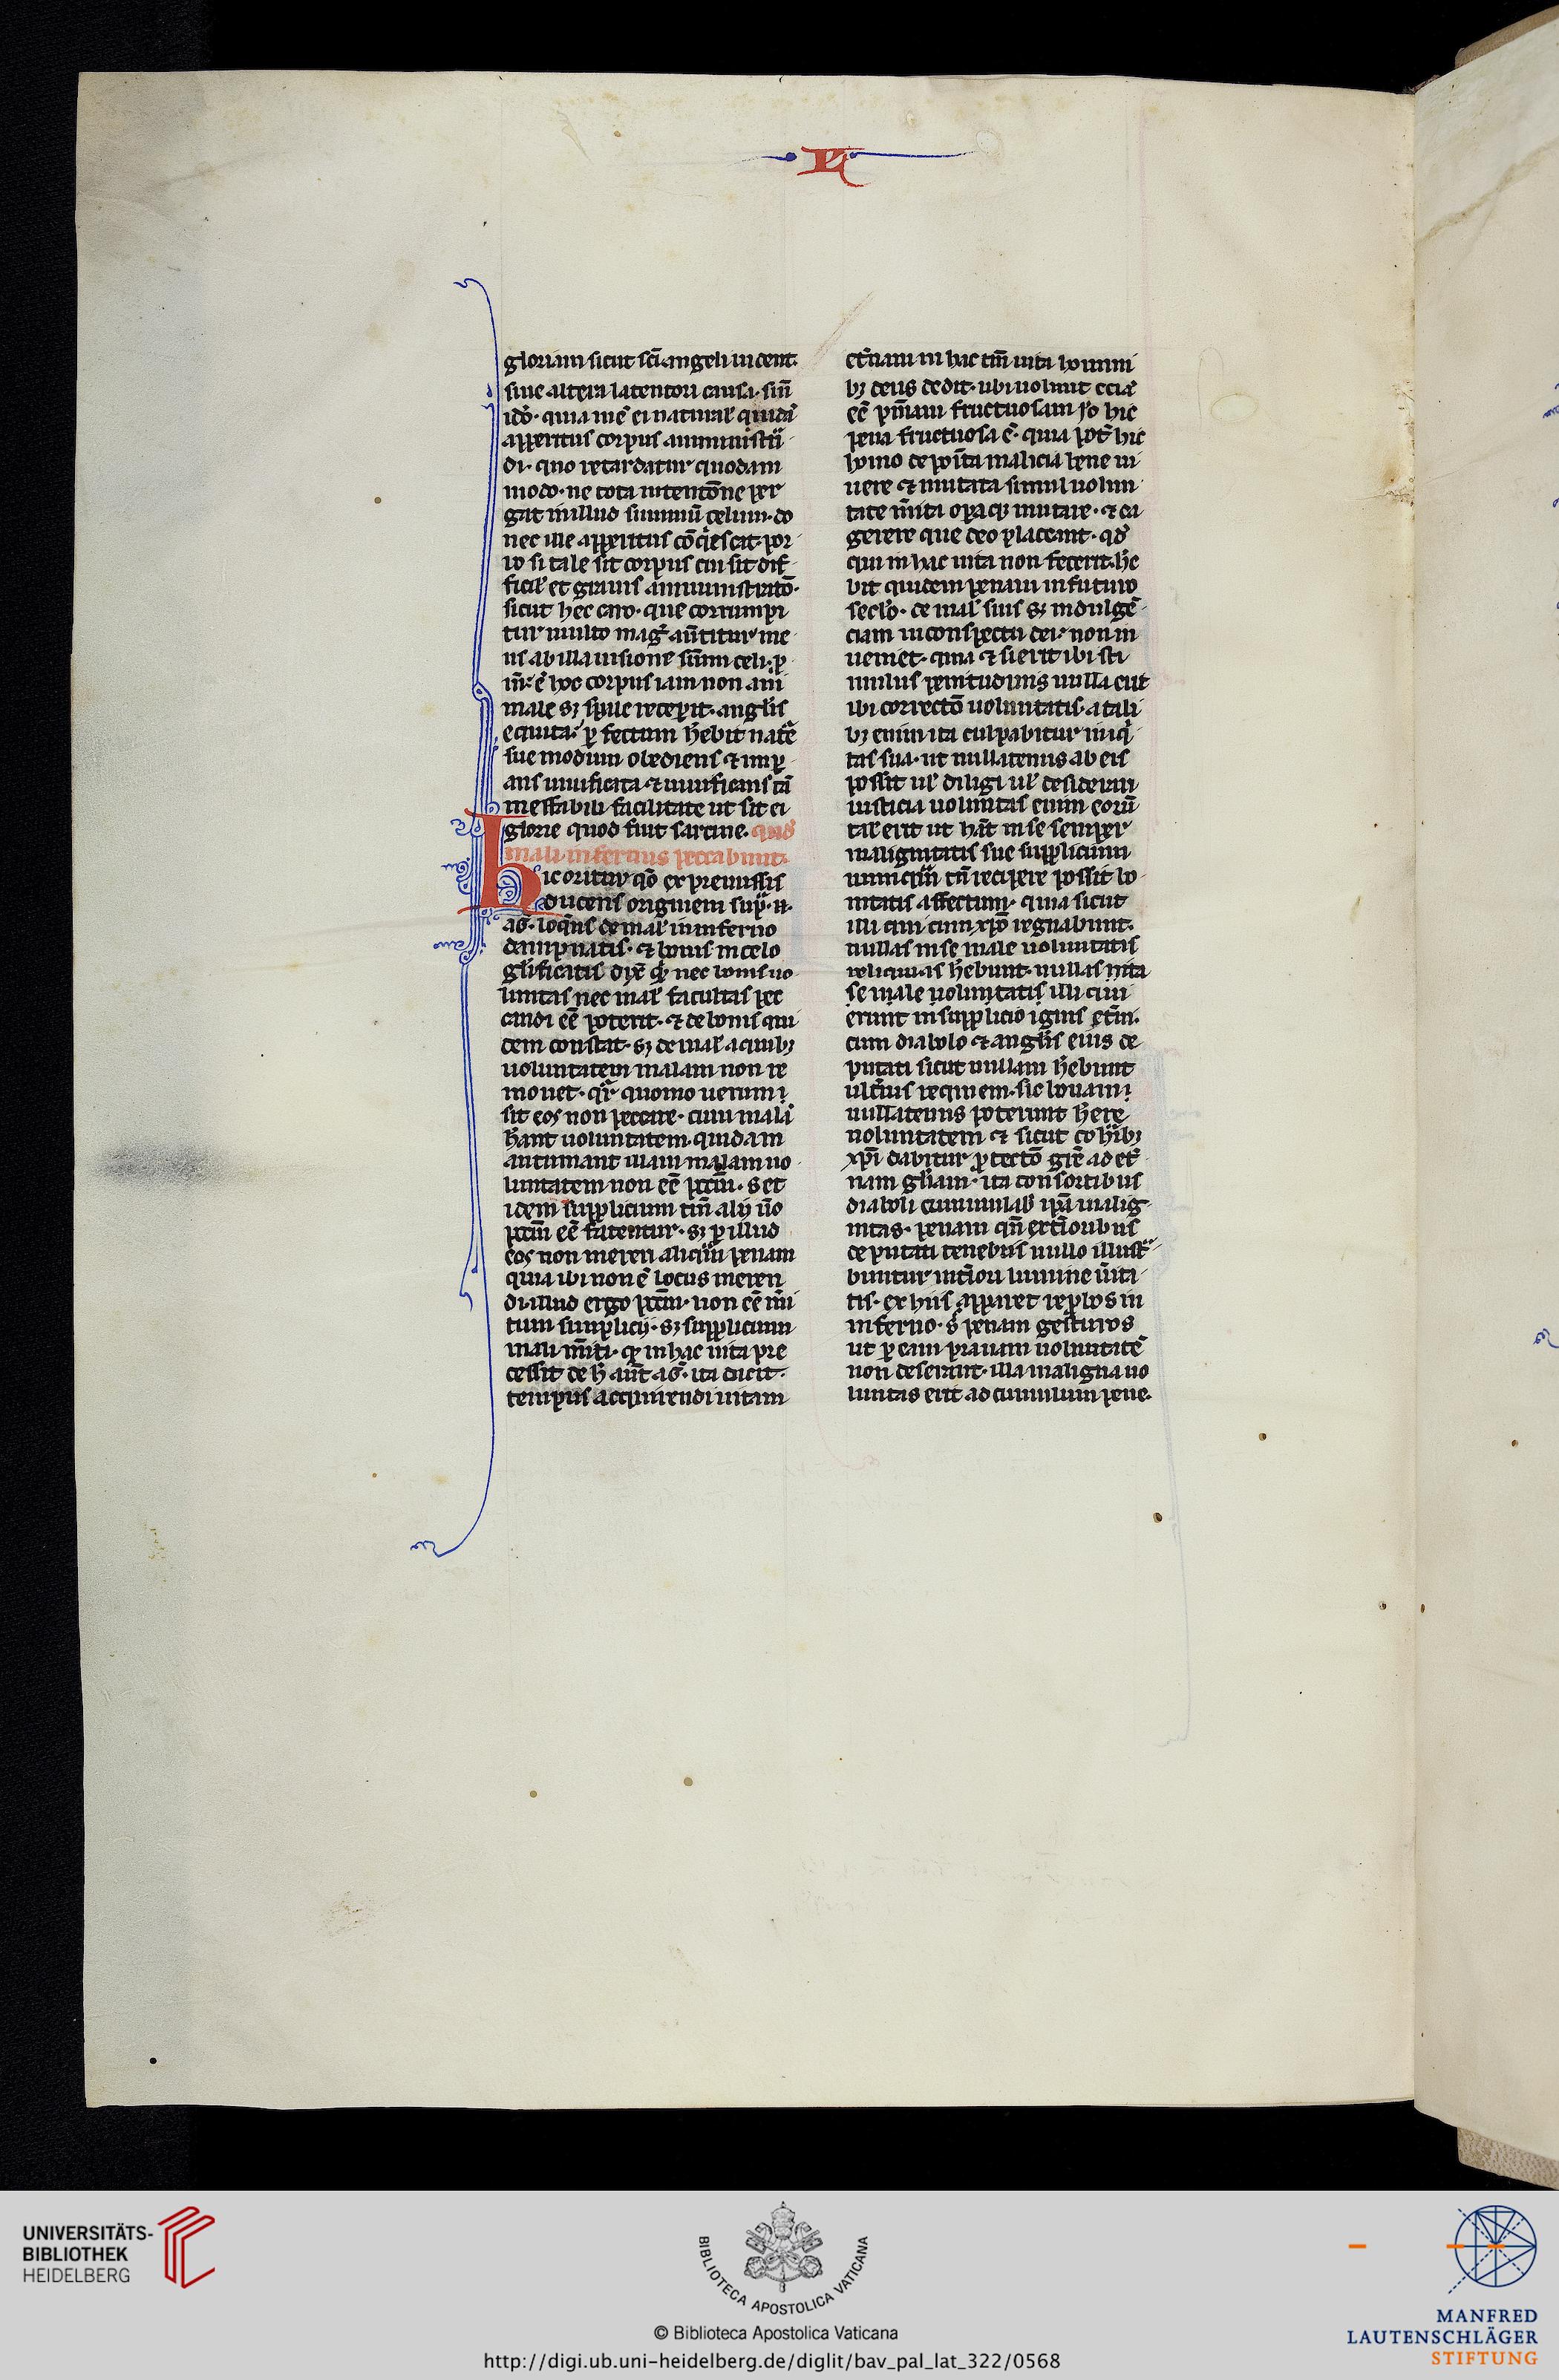 L
gloriam sicut sc̄i angeli uideant.
siue altera latentori causa. siū
idō. quia inē ei naturał quidā
apperitus corpus amministrā
di. quo retardatur quodam
modo. ne tota intentōne per
gat in illud summū celum. do
nec ille apperitus cōq̄escat. por
ro si tale sit corpus cui sit dif
ficił et grauis amministratō.
sicut hec caro. que corrumpi
tur multo maḡ aūtitur me
ns ab illa uisione sūmi celi. ꝓ
īn. ē hoc corpus iam non ani
male sꝫ sp̄uale receperit. angelis
equata. ꝑfectum hēbit natē
sue modum obediens ⁊ imꝑ
ans uiuificata ⁊ uiuificans tā
ineffabili facilitate ut sit ei
glorie quod fuit sarcine. quod
mali in fernus peccabunt.
Hic oritur qō ex premissis
ducens originem sup̄. n.
aḡ. loq̄ns de mał in inferno
dampnatis. ⁊ bonis in celo
gl̄ificatis dix̄ ꝙ nec bonis uo
luntas nec mał facultas pec
candi eē poterit. ⁊ de bonis qui
dem constat. sꝫ de mał a quibꝫ
uoluntatem malam non re
mouet. qr̄ quomo uerum
sit eos non peccare. cum malā
hāant uoluntatem. quidam
autumant illam malam uo
luntatem non eē pctm̄. set
idem supplicium tm̄ alij ūo
pctm̄ eē fatentur. sꝫ ꝑ illud
eos non mereri aliq̄m penam
quia ibi non ē locus meren
di. illud ergo pctm̄. non eē m̄i
tum supplicij. sꝫ supplicium
mali m̄iti. ꝙ in hac uita pre
cessit de h̄ aūt aḡ. ita dicit.
tempus acquirendi uitam
et̄nam in hac tm̄ uita homini
bꝫ deus dedit. ubi uoluit eciā
eē pīnam fructuosam īo hic
pena fructuosa ē. quia pōt hic
homo deposita malicia bene ui
uere ⁊ mutata simul uolun
tate m̄ita oꝑaqꝫ mutare. ⁊ ea
gerere que deo placeant. qđ
qui in hac uita non fecerit. hē
bit quidem penam in futuro
sectō. de mał suis sꝫ indulgē
ciam in conspectu dei. non in
ueniet. quia ⁊ si erit ibi sti
mulus penitudinis nulla erit
ibi correctō uoluntatis. a tali
bꝫ enim ita culpabitur iniq̄
tas sua. ut nullatenus ab eis
possit uł diligi uł desiderari
iusticia uoluntas enim eorū
tał erit ut hāt in se semper
malignitatis sue supplicium
numq̄m tn̄ recipere possit bo
nitatis affectum. quia sicut
illi qui cum xp̄o regnabunt.
nullas in se male uoluntatis
reliquias hēbunt. nullas in ita
se male uoluntatis illi qui
erunt in supplicio ignis et̄ni.
cum diabolo ⁊ anglis eius de
putati sicut nullam hēbunt
ult̄ius requiem. sic bonam
nullatenus poterunt hēre
uoluntatem ⁊ sicut cohībꝫ
xp̄i dabitur ꝑfectō grē ad et̄
nam gl̄iam. ita consortibus
diaboli cumulab̄ ip̄a malig
nitas. penam qn̄ ext̄ioribus
deputati tenebris nullo illustra
buntur int̄iori lumine ūita
tis. ex hiis apparet reprobos in
inferno. s̄ penam gesturos
ut ꝑ eam prauam uoluntatē
non deserant. illa maligna uo
luntas erit ad cumulum pene.
UNIVERSITÄTS-
BIBLIOTHEK
HEIDELBERG
BIBLIOTECA APOSTOLICA VATICANA
© Biblioteca Apostolica Vaticana
http://digi.ub.uni-heidelberg.de/diglit/bav_pal_lat_322/0568
MANFRED
LAUTENSCHLÄGER
STIFTUNG